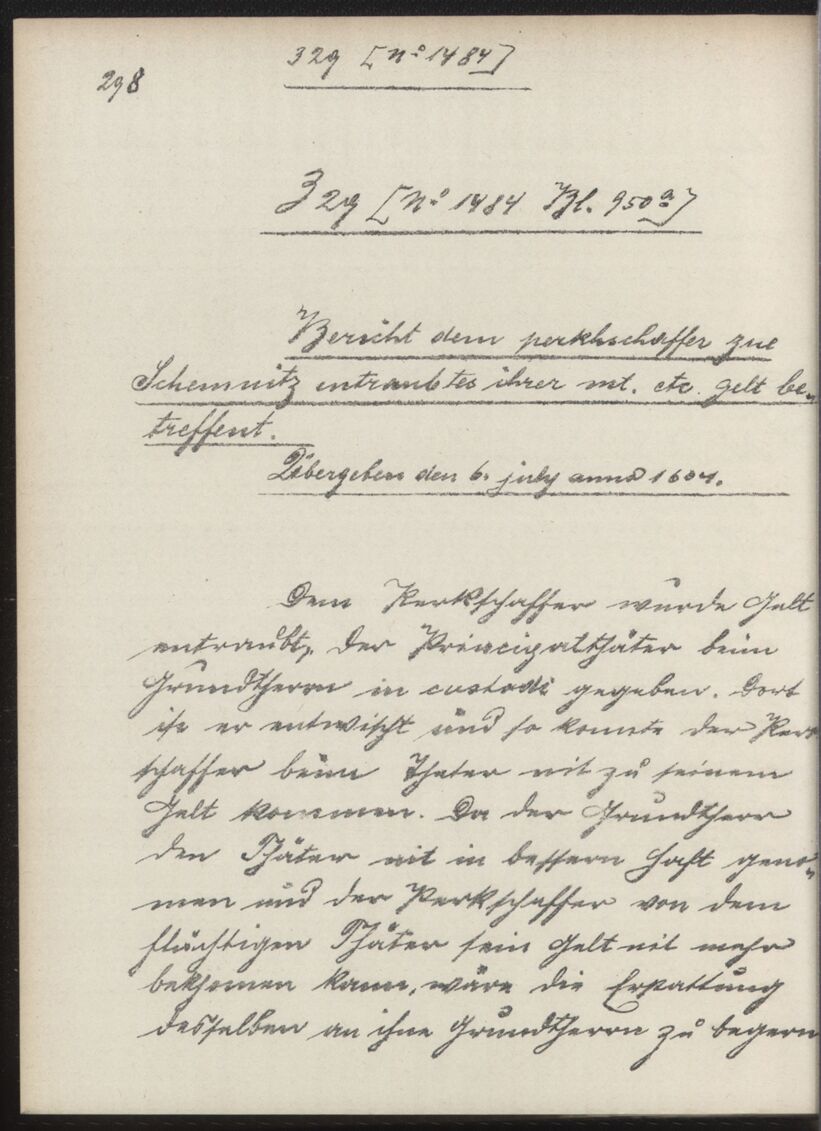 329 [No 1484]
298
329 [No 1484 Bl. 950a]
Bericht dem perkhschaffer zue
Schemnitz entraubtes ihrer mt. etc. gelt be-
treffent.
Übergeben den 6. july anno 1604.
Dem Perkschaffer wurde Gelt
entraubt, der Principalthäter beim
Grundtherrn in custodi gegeben. Dort
ist er entwischt und so konnte der Perk
schaffer beim Thater nit zu seinem
Gelt kommen. Da der Grundtherr
den Thäter nit in bessern Haft geno-
men und der Perkschaffer von dem
flüchtigen Thäter sein Gelt nit mehr
bekhomen kann, wäre die Erstattung
desselben an ihne Grundtherrn zu begern